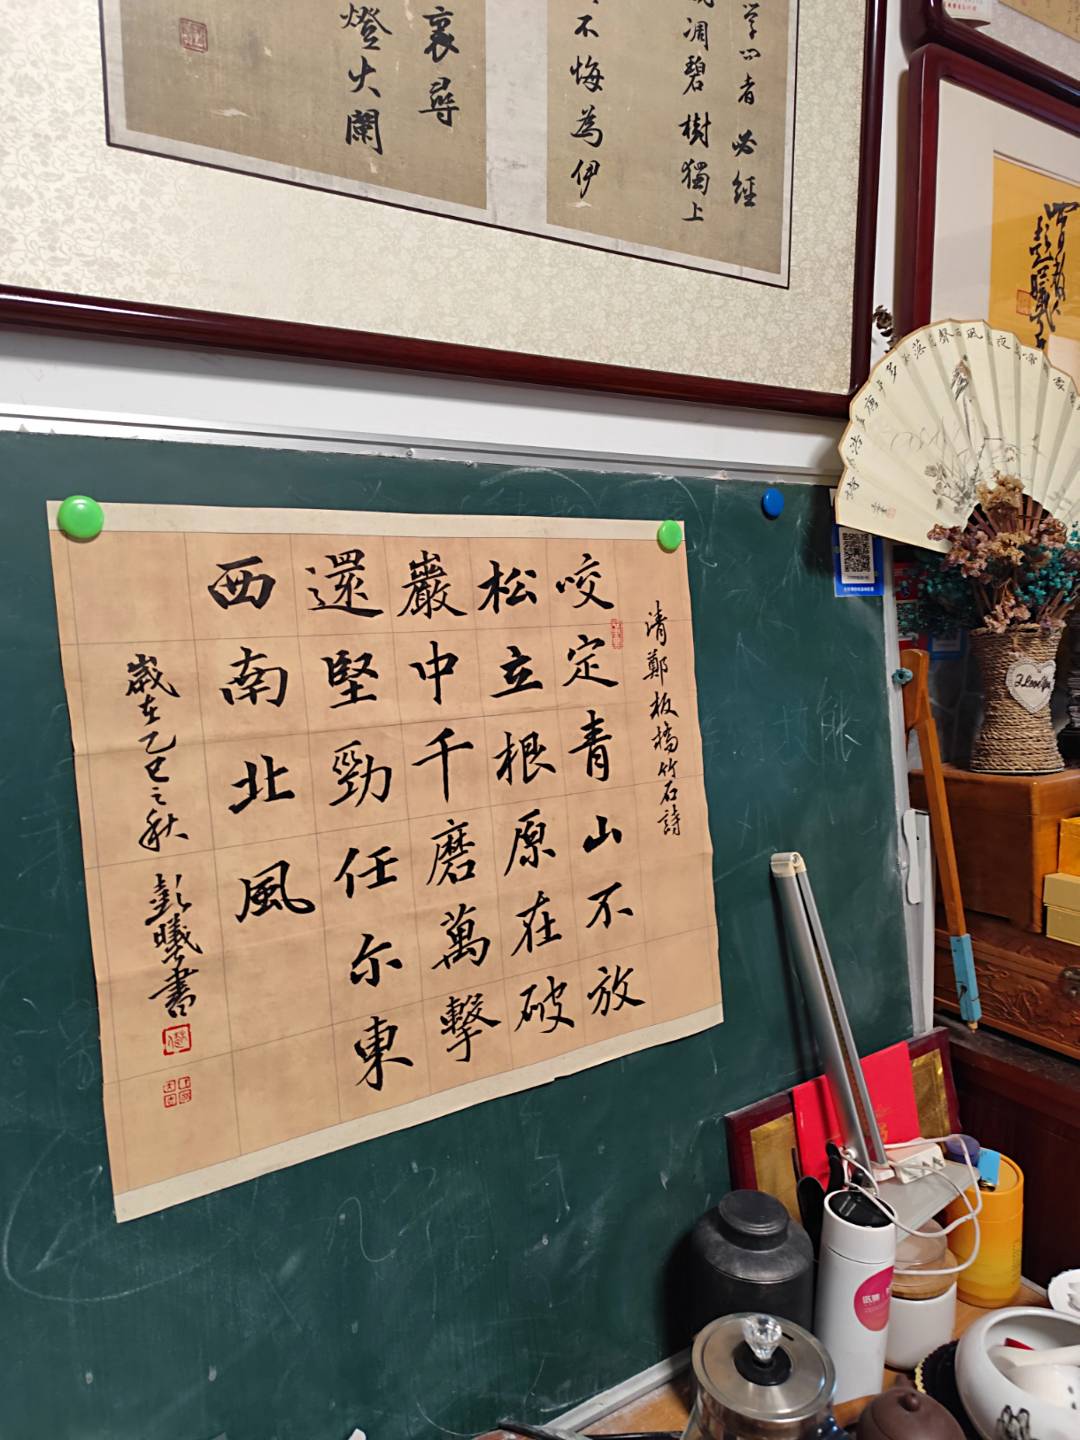 學问者必經
凋碧樹獨上
不悔為伊
裏尋
燈火闌
清鄭板橋竹石詩
咬定青山不放
松立根原在破
巖中千磨萬擊
還堅勁任尔東
西南北風
歲在乙巳之秋
彭曦書
I Love You